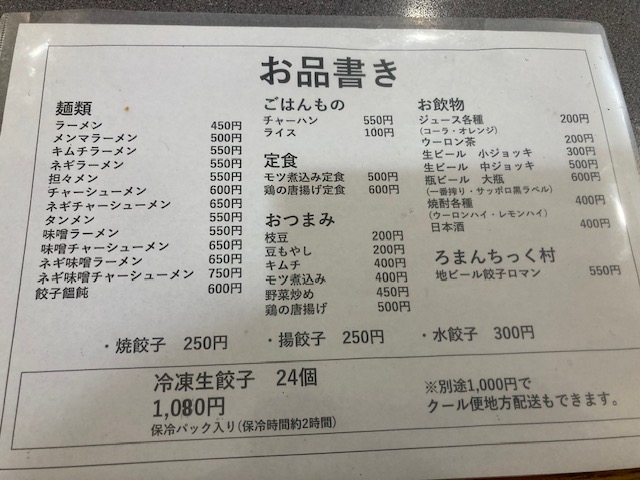 お品書き
麺類
ラーメン 450円
メンマラーメン 500円
キムチラーメン 550円
ネギラーメン 550円
担々メン 550円
チャーシューメン 600円
ネギチャーシューメン 650円
タンメン 550円
味噌ラーメン 550円
味噌チャーシューメン 650円
ネギ味噌ラーメン 650円
ネギ味噌チャーシューメン 750円
餃子饂飩 600円
ごはんもの
チャーハン 550円
ライス 100円
定食
モツ煮込み定食 500円
鶏の唐揚げ定食 600円
おつまみ
枝豆 200円
豆もやし 200円
キムチ 400円
モツ煮込み 400円
野菜炒め 450円
鶏の唐揚げ 500円
お飲物
ジュース各種 200円
(コーラ・オレンジ)
ウーロン茶 200円
生ビール 小ジョッキ 300円
生ビール 中ジョッキ 500円
瓶ビール 大瓶 600円
(一番搾り・サッポロ黒ラベル)
焼酎各種 400円
(ウーロンハイ・レモンハイ)
日本酒 400円
ろまんちっく村
地ビール餃子ロマン 550円
・焼餃子 250円 ・揚餃子 250円 ・水餃子 300円
冷凍生餃子 24個
1,080円
保冷パック入り(保冷時間約2時間)
※別途1,000円で
クール便地方配送もできます。